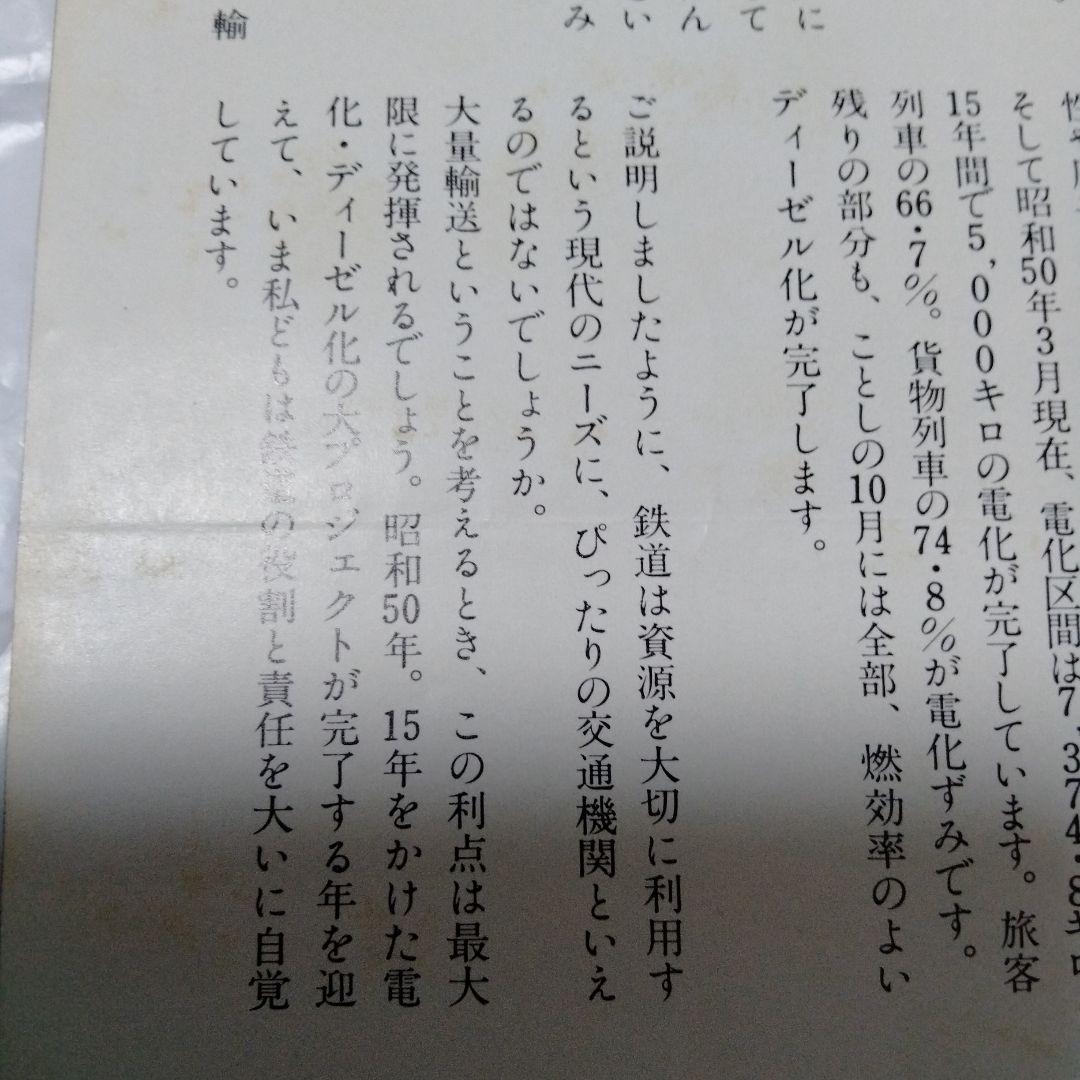 に
て
ん
い
み
輸
そして昭和50年3月現在、電化区間は7,374・8キロ
15年間で5,000キロの電化が完了しています。旅客
列車の66・7%。貨物列車の74・8%が電化ずみです。
残りの部分も、ことしの10月には全部、燃効率のよい
ディーゼル化が完了します。
ご説明しましたように、鉄道は資源を大切に利用す
るという現代のニーズに、ぴったりの交通機関といえ
るのではないでしょうか。
大量輸送ということを考えるとき、この利点は最大
限に発揮されるでしょう。昭和50年。15年をかけた電
化・ディーゼル化の大プロジェクトが完了する年を迎
えて、いま私どもは鉄道の役割と責任を大いに自覚
しています。